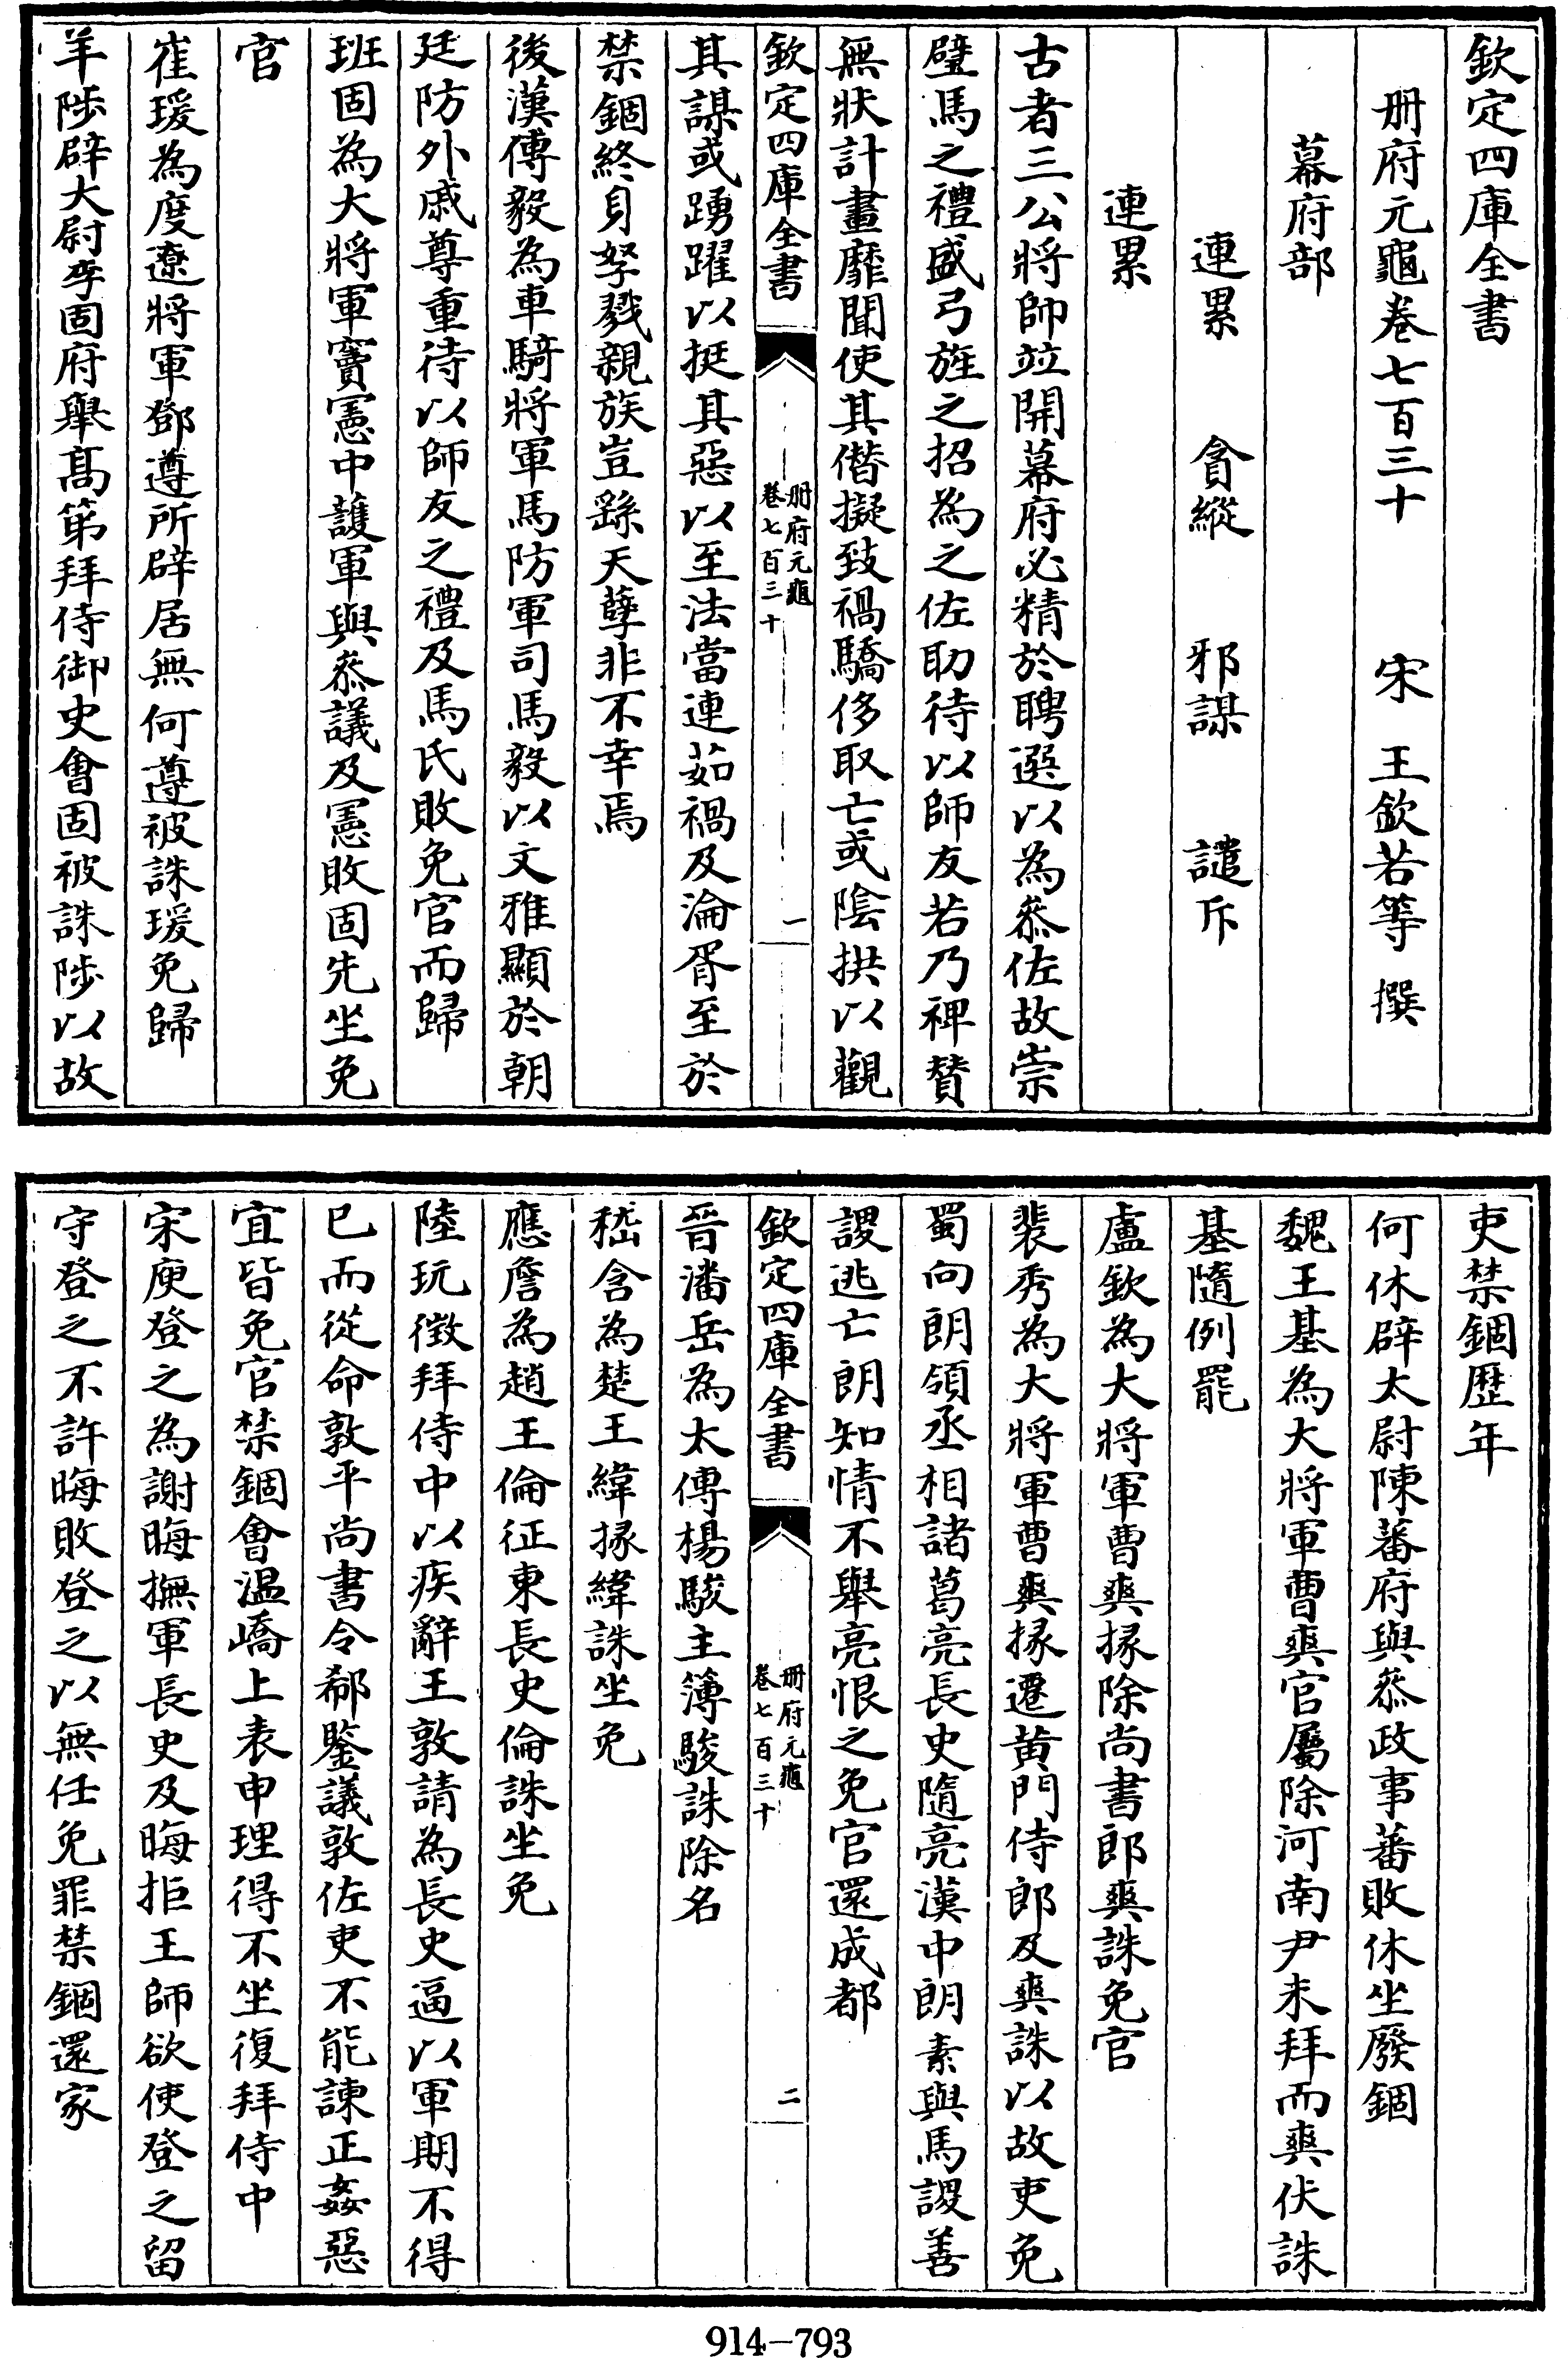 欽定四庫全書
册府元龜卷七百三十　宋　王欽若等　撰
幕府部
連累　貪縱　邪謀　譴斥
連累
古者三公將帥竝開幕府必精於聘選以為叅佐故崇
璧馬之禮盛弓旌之招為之佐助待以師友若乃裨贊
無狀計畫靡聞使其僭擬致禍驕侈取亡或陰拱以觀
欽定四庫全書
册府元龜
卷七百三十
一
其謀或踴躍以挺其惡以至法當連茹禍及淪胥至於
禁錮終身孥戮親族豈繇天孽非不幸焉
後漢傅毅為車騎將軍馬防軍司馬毅以文雅顯於朝
廷防外戚尊重待以師友之禮及馬氏敗免官而歸
班固為大將軍竇憲中護軍與叅議及憲敗固先坐免
官
崔瑗為度遼將軍鄧遵所辟居無何遵被誅瑗免歸
羊陟辟大尉李固府舉高第拜侍御史會固被誅陟以故
吏禁錮歷年
何休辟太尉陳蕃府與叅政事蕃敗休坐廢錮
魏王基為大將軍曹爽官屬除河南尹未拜而爽伏誅
基隨例罷
盧欽為大將軍曹爽掾除尚書郎爽誅免官
裴秀為大將軍曹爽掾遷黄門侍郎及爽誅以故吏免
蜀向朗領丞相諸葛亮長史隨亮漢中朗素與馬謖善
謖逃亡朗知情不舉亮恨之免官還成都
欽定四庫全書
册府元龜
卷七百三十
二
晉潘岳為太傅楊駿主簿駿誅除名
嵇含為楚王緯掾緯誅坐免
應詹為趙王倫征東長史倫誅坐免
陸玩徴拜侍中以疾辭王敦請為長史逼以軍期不得
已而從命敦平尚書令郗鑒議敦佐吏不能諫正姦惡
宜皆免官禁錮會温嶠上表申理得不坐復拜侍中
宋庾登之為謝晦撫軍長史及晦拒王師欲使登之留
守登之不許晦敗登之以無任免罪禁錮還家
914-793